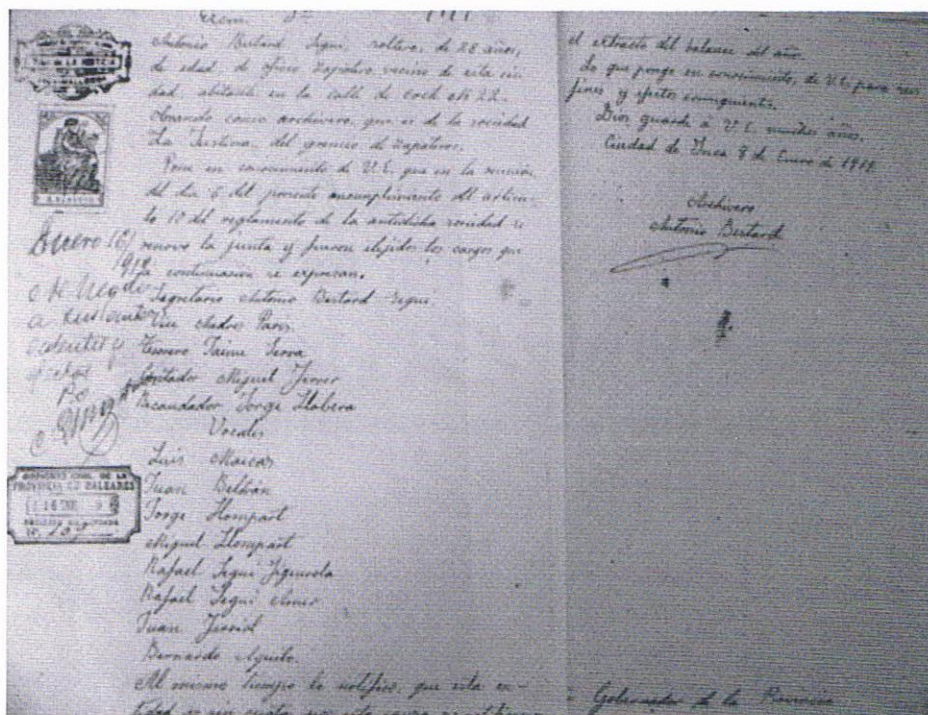 Antonio Bestard Seguí, soltero, de 28 años,
de edad, de ofisio zapatero vecino de esta ciu
dad, abitante en la calle de coch No 22.
Obrando como archivero, que es de la sociedad
La Justicia, del gremio de zapateros.
Pone en conocimiento de V.E. que en la reunion
del dia 6 del presente encumplimiento del articu-
lo 10 del reglamento de la antedicha sociedad se
renovo la junta y fueron elejidos los cargos que
a continuacion se expresan.
Segretario Antonio Bestard Segui.
Vice Andres París.
Tesorero Jaime Serra
Contador Miguel Ferrer
Recaudador Jorge Llabera
Vocales
Luis Maicas
Juan Beltrán
Jorge Llompart
Miguel Llompart
Rafael Segui Figuerola
Rafael Segui
Juan
Bernardo Aguilo.
Al mismo tiempo le notifico, que esta en-
Enero 16/
GOBIERNO CIVIL DE LA
PROVINCIA DE BALEARES
16 ENE
el extracto del balance del año.
Lo que pongo en conocimiento, de V.E. para sus
fines y efectos consiguientes.
Dios guarde á V.E. muchos años.
Ciudad de Inca 8 de Enero de 1919
Archivero
Antonio Bestard
Gobernador de la Provincia